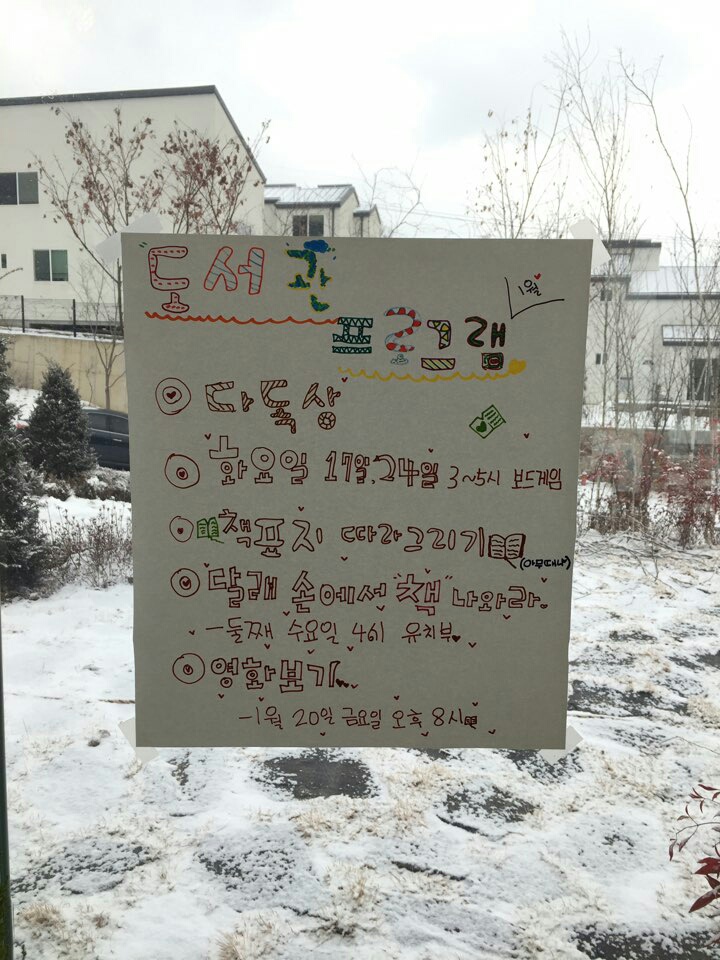 도서관
1월
프로그램
다독상
화요일 17일, 24일 3~5시 보드게임
책표지 따라그리기 (아무때나)
달래 손에서 "책" 나와라.
-둘째 수요일 4시 유치부
영화보기...
-1월 20일 금요일 오후 8시